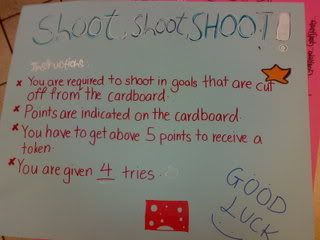 Shoot, Shoot, SHOOT!
Instructions:
* You are required to shoot in goals that are cut
off from the cardboard.
* Points are indicated on the cardboard.
* You have to get above 5 points to receive a
token.
* You are given 4 tries.
GOOD
LUCK